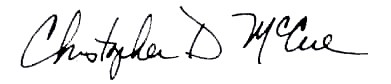 Christopher D McCue